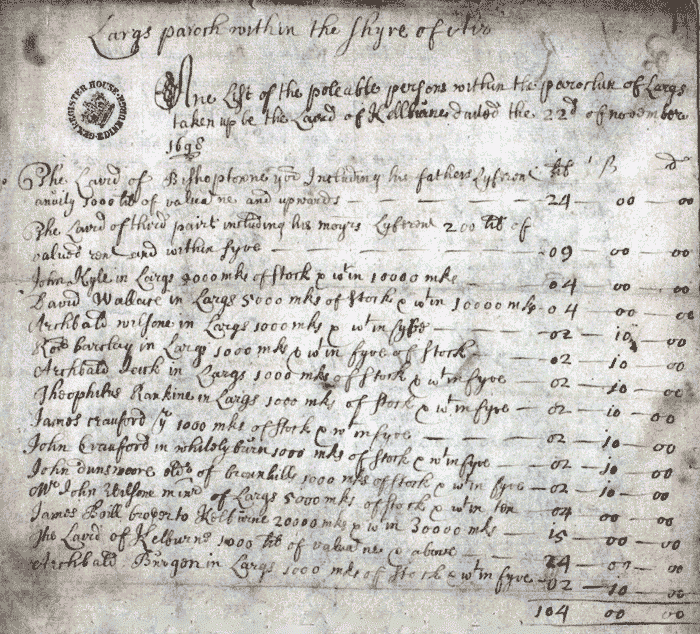 Largs paroch within the shyre of Air
REGISTER HOUSE EDINBURGH
Ane List of the poleable persons within the parochin of Largs
taken up be the Laird of Kelburne dated the 22d of november
1698
The Laird of Bishoptoune yor Including his fathers Lyferent lib ß d
anuity 1000 lib of valua ne and upwards — 24 — 00 — 00
The Laird of third pairt including his moyrs Lyferent 200 lib of
valued rent and within fyve — 09 — 00 — 00
John Kyle in Largs 9000 mks of stock & wtin 10000 mks — 04 — 00 — 00
David Wallace in Largs 5000 mks of stock & wtin 10000 mks — 04 — 00 — 00
Archbald wilsone in Largs 1000 mks & wtin fyve — 02 — 10 — 00
Rot barclay in Largs 1000 mks & wtin fyve of stock — 02 — 10 — 00
Archbald Jack in Largs 1000 mks of stock & wtin fyve — 02 — 10 — 00
Theophilus Rankine in Largs 1000 mks of stock & wtin fyve — 02 — 10 — 00
James crauford yr 1000 mks of stock & wtin fyve — 02 — 10 — 00
John Crauford in whiteley burn 1000 mks of stock & wtin fyve — 02 — 10 — 00
John dunsmoore elder of brounhills 1000 mks of stock & wtin fyve — 02 — 10 — 00
Mr John Wilsone minr of Largs 5000 mks of stock & wtin ten — 04 — 00 — 00
James Boill broyer to Kelburne 20000 mks & wtin 30000 mks — 15 — 00 — 00
The Laird of Kelburne 1000 lib of valua ne & above — 24 — 00 — 00
Archbald Burgon in Largs 1000 mks of stock & wtin fyve — 02 — 10 — 00
104 00 00